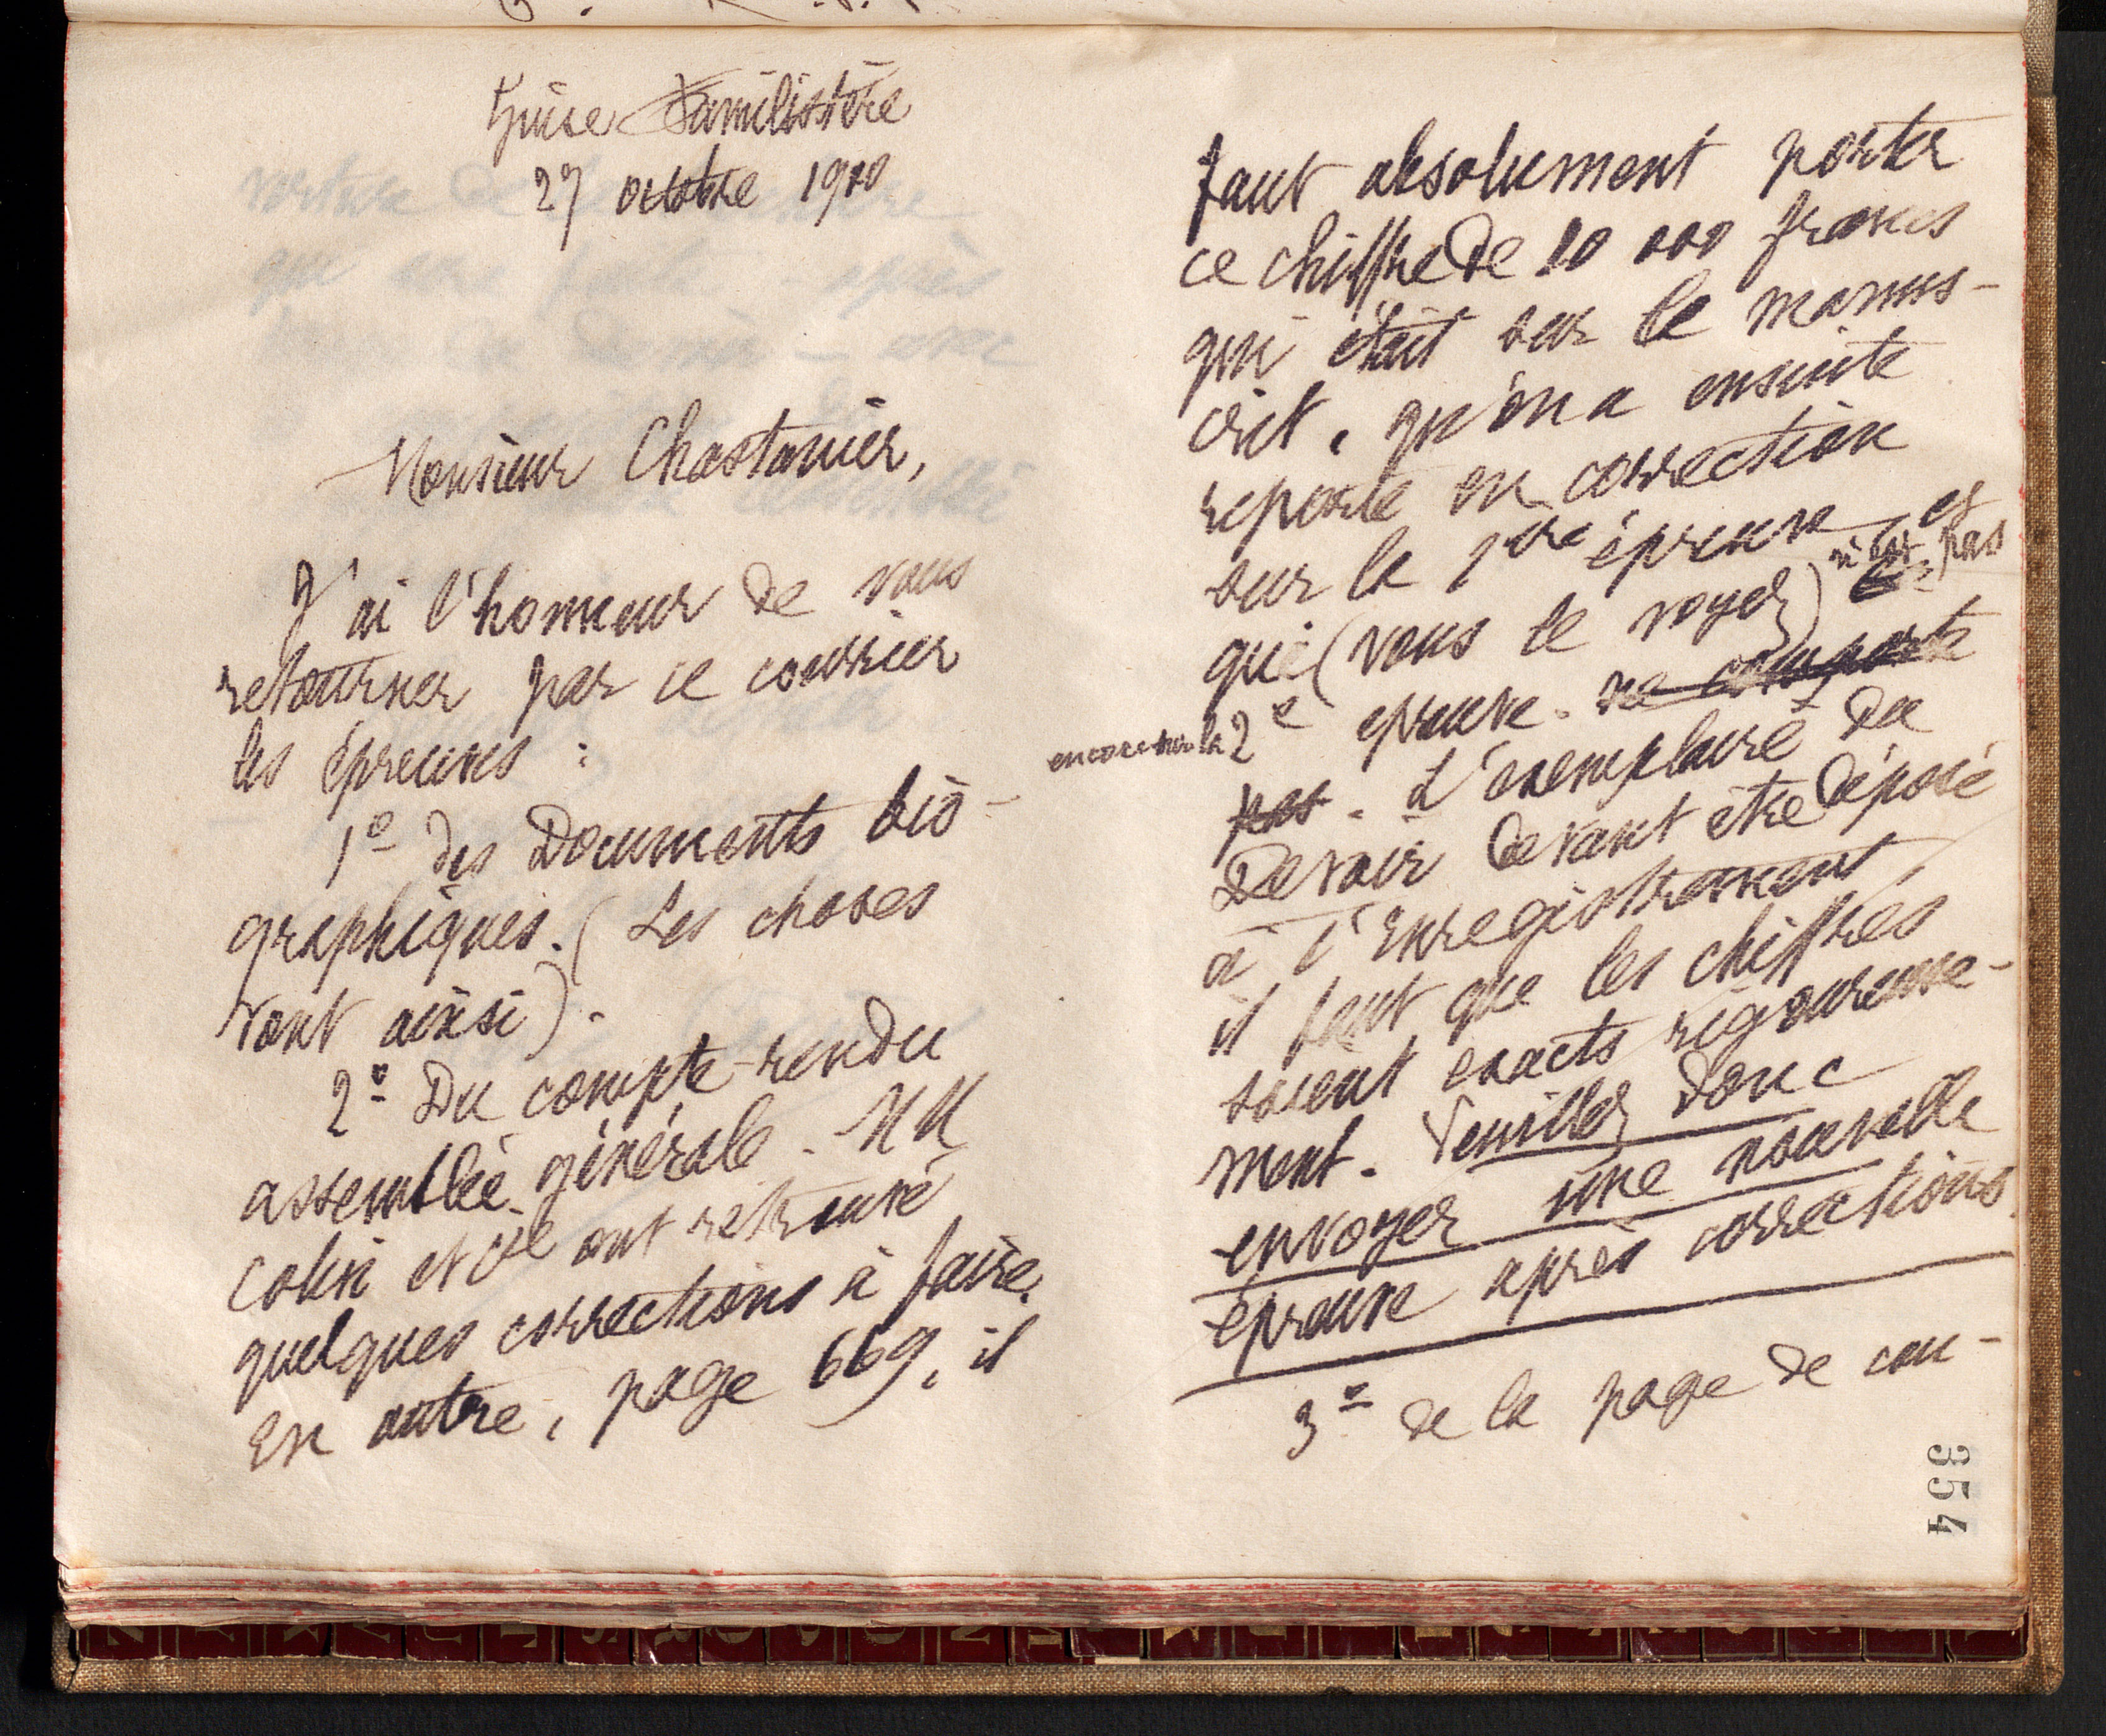 Guise Familistère
27 octobre 1900
Monsieur Chastanier,
J'ai l'honneur de vous
retourner par ce courrier
les épreuves :
1º des Documents bio-
graphiques. (Les choses
vont ainsi).
2º Du compte-rendu
assemblée générale. MM
Colin et Cie ont retrouvé
quelques corrections à faire.
En outre, page 669, il
faut absolument porter
ce chiffre de 20 000 francs
qui était sur le manus-
crit, qu'on a ensuite
reporté en correction
sur la 1ère épreuve et
qui (vous le voyez) n'est pas
encore sur la 2e épreuve. ne comporte
pas. L'exemplaire du
Devoir devant être déposé
à l'Enregistrement,
il faut que les chiffres
soient exacts rigoureuse-
ment. Veuillez donc
envoyer une nouvelle
épreuve après corrections.
3º de la page de cou-
354